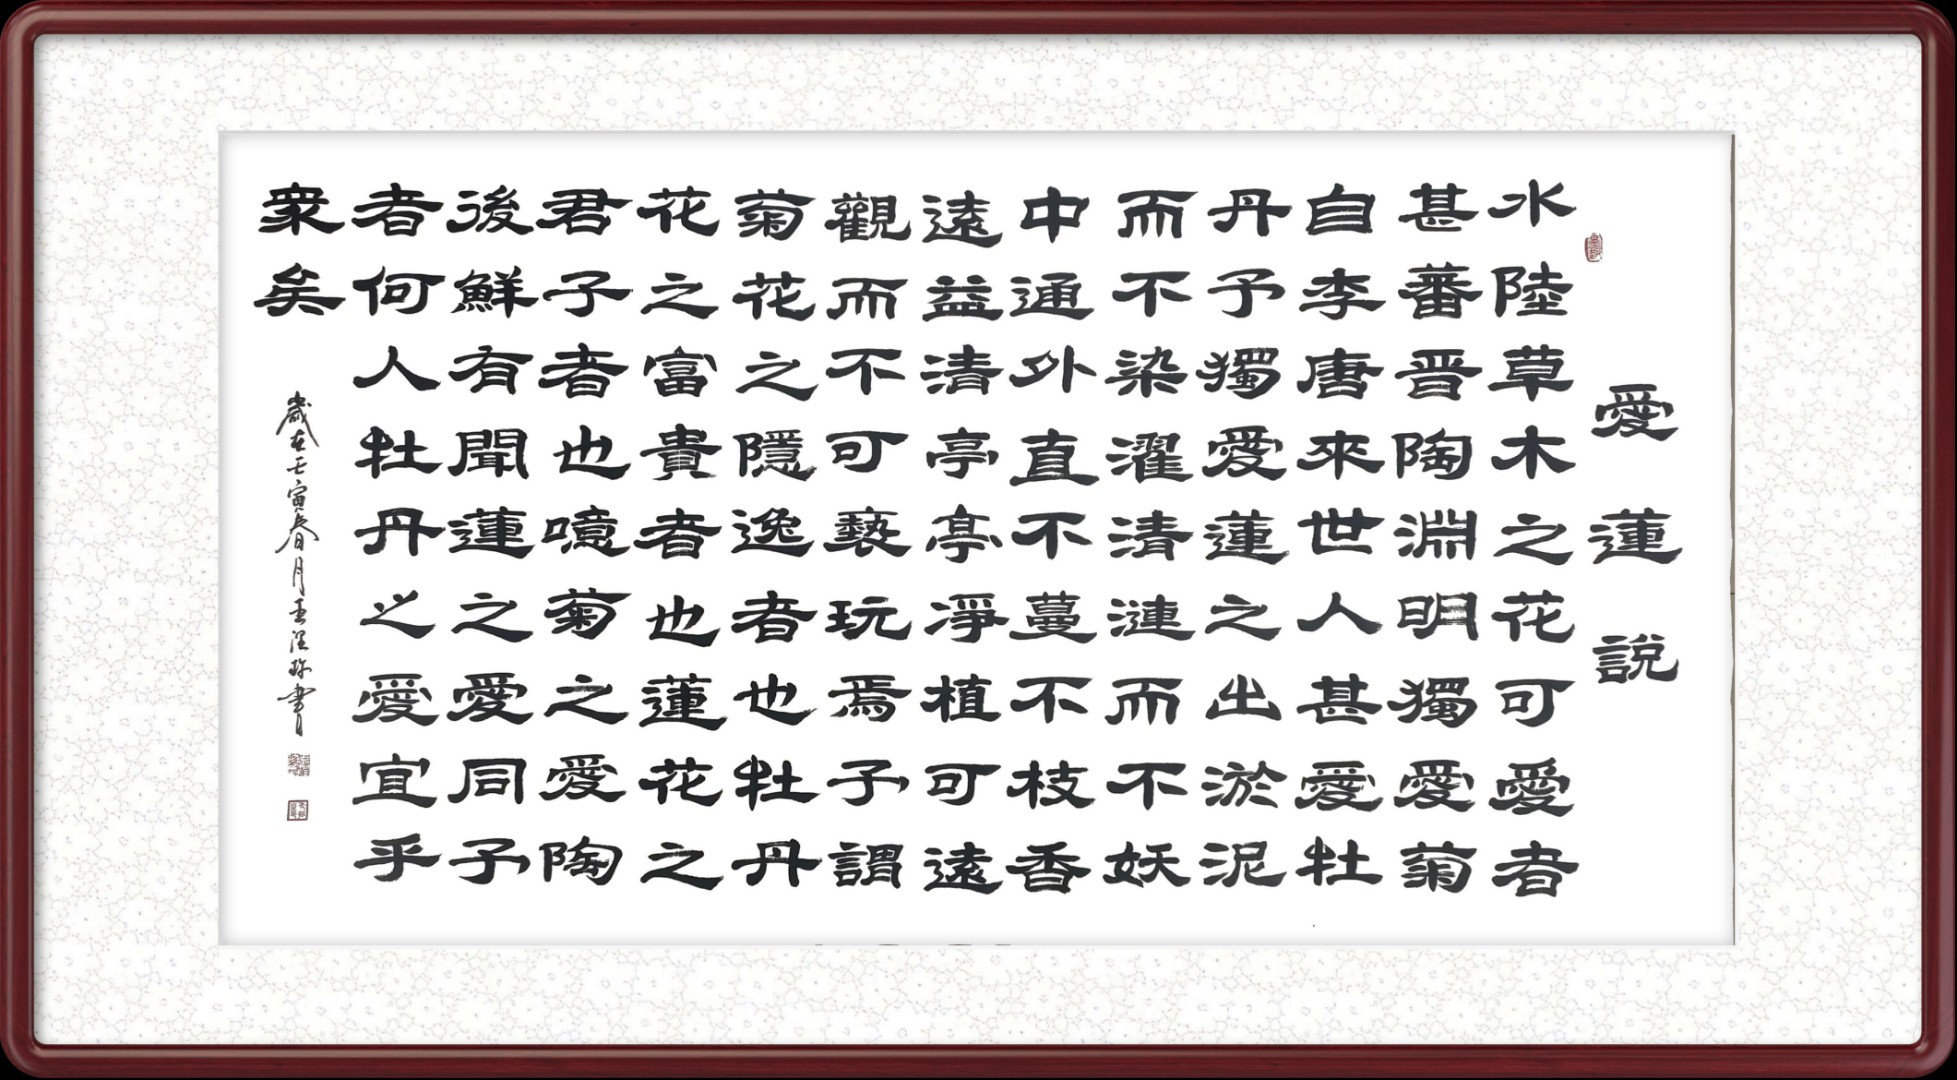 愛蓮說
水陸草木之花可愛者
甚蕃晋陶淵明獨愛菊
自李唐來世人甚愛牡
丹予獨愛蓮之出淤泥
而不染濯清漣而不妖
中通外直不蔓不枝香
遠益清亭亭凈植可遠
觀而不可褻玩焉子謂
菊花之隱逸者也牡丹
花之富貴者也蓮花之
君子者也噫菊之愛陶
後鮮有聞蓮之愛同子
者何人牡丹之愛宜乎
衆矣
歲在壬寅春月王書